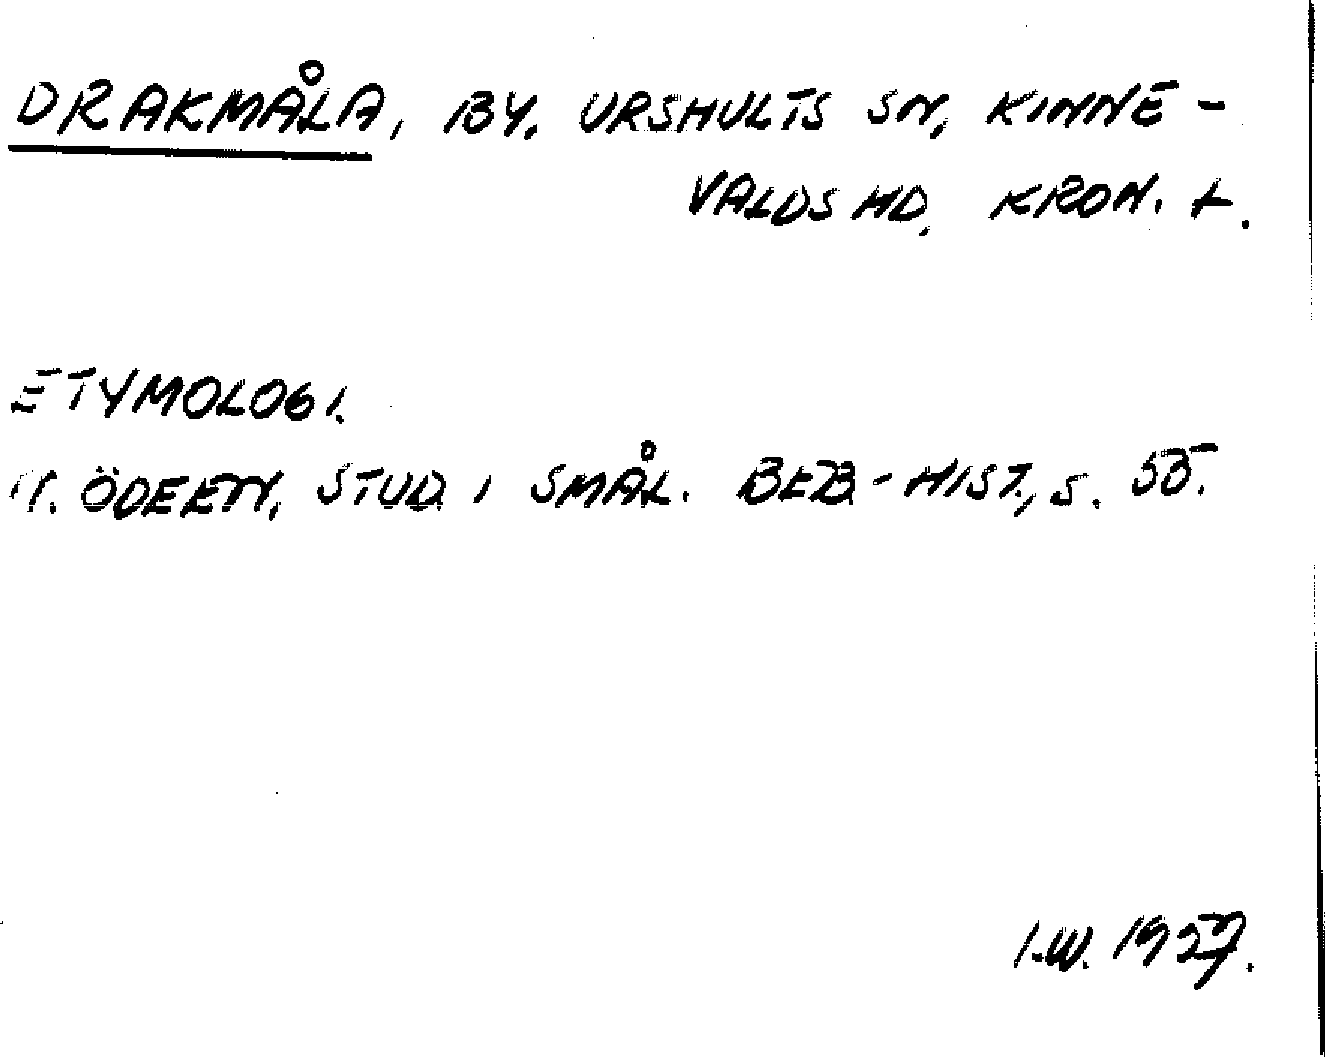 DRAKMÅLA, BY. URSHULTS SN, KINNE-
VALDS HD, KRON. L.
ETYMOLOGI.
N. ÖDEEN, STUD. I SMÅL. BEB.-HIST., S. 55.
I.W. 1957.